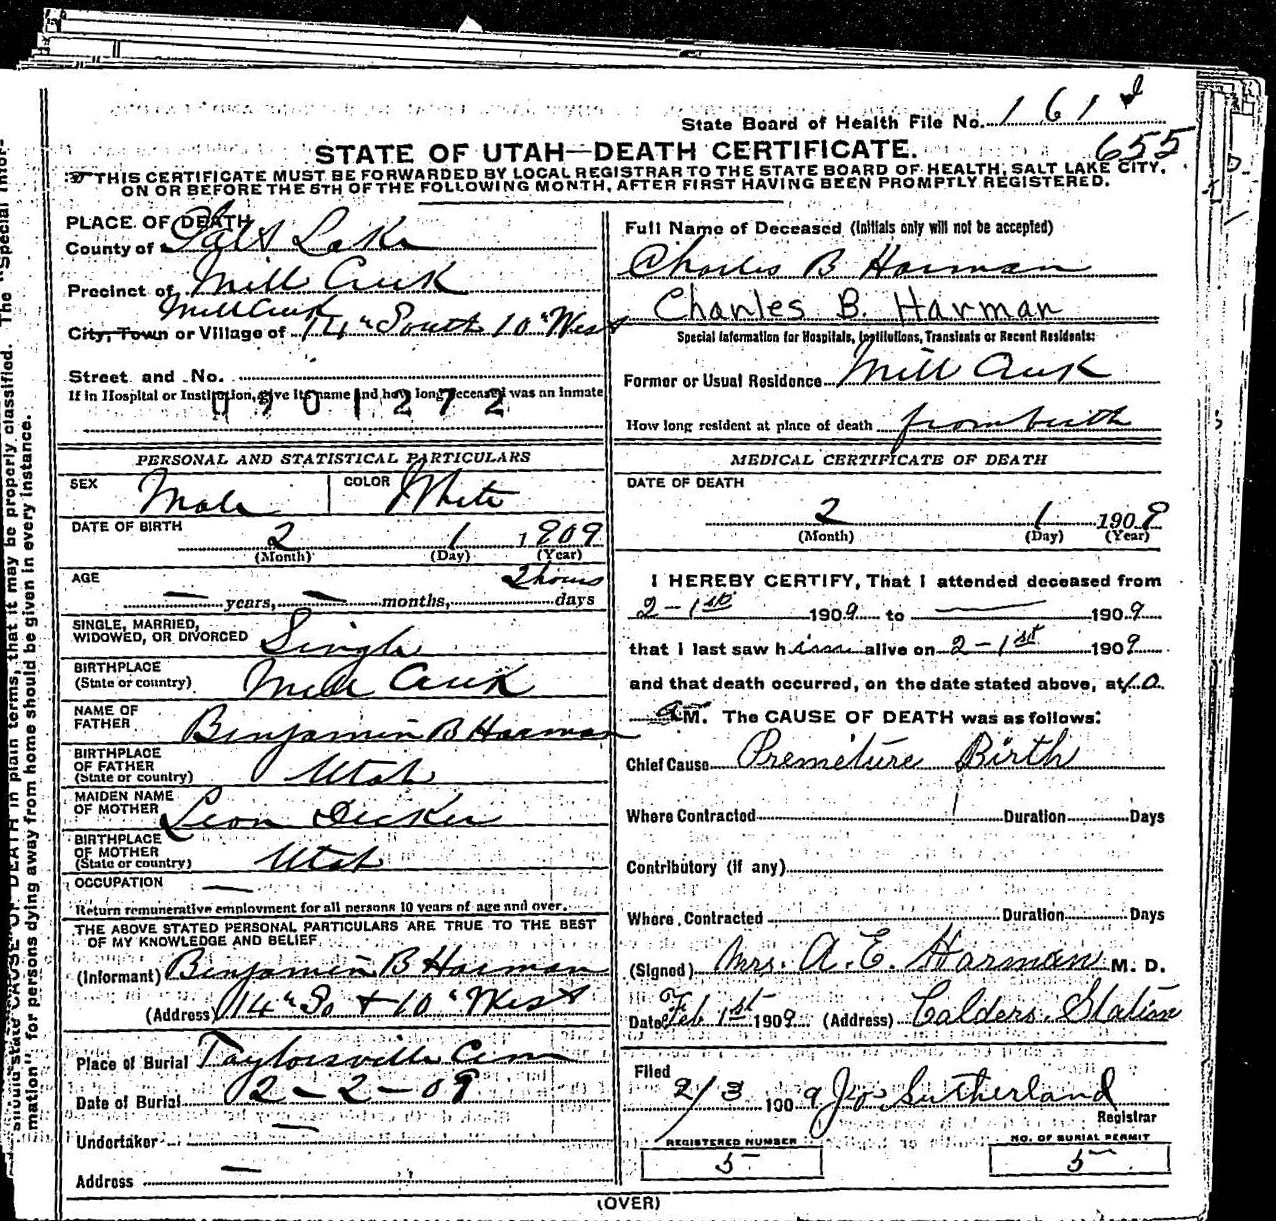 State Board of Health File No. 161
655
STATE OF UTAH—DEATH CERTIFICATE.
THIS CERTIFICATE MUST BE FORWARDED BY LOCAL REGISTRAR TO THE STATE BOARD OF HEALTH, SALT LAKE CITY,
ON OR BEFORE THE 5TH OF THE FOLLOWING MONTH, AFTER FIRST HAVING BEEN PROMPTLY REGISTERED.
PLACE OF DEATH
County of Salt Lake
Precinct of Mill Creek
Mill Creek
City, Town or Village of 14th South 10th West
Street and No.
If in Hospital or Institution, give its name and how long deceased was an inmate
0901272
PERSONAL AND STATISTICAL PARTICULARS
SEX Male COLOR White
DATE OF BIRTH
2 1 1909
(Month) (Day) (Year)
AGE 2 hours
— years, — months, days
SINGLE, MARRIED,
WIDOWED, OR DIVORCED Single
BIRTHPLACE
(State or country) Mill Creek
NAME OF
FATHER Benjamin B Harman
BIRTHPLACE
OF FATHER
(State or country) Utah
MAIDEN NAME
OF MOTHER Leon Decker
BIRTHPLACE
OF MOTHER
(State or country) Utah
OCCUPATION —
Return remunerative employment for all persons 10 years of age and over.
THE ABOVE STATED PERSONAL PARTICULARS ARE TRUE TO THE BEST
OF MY KNOWLEDGE AND BELIEF
(Informant) Benjamin B Harman
(Address) 14th So + 10th West
Place of Burial Taylorsville Cem
Date of Burial 2-2-09
Undertaker —
Address —
Full Name of Deceased (Initials only will not be accepted)
Charles B Harman
Charles B. Harman
Special Information for Hospitals, Institutions, Transients or Recent Residents:
Former or Usual Residence Mill Creek
How long resident at place of death from birth
MEDICAL CERTIFICATE OF DEATH
DATE OF DEATH
2 1 1909
(Month) (Day) (Year)
I HEREBY CERTIFY, That I attended deceased from
2-1st 1909 to — 1909
that I last saw him alive on 2-1st 1909
and that death occurred, on the date stated above, at 10
a M. The CAUSE OF DEATH was as follows:
Chief Cause Premeture Birth
Where Contracted Duration Days
Contributory (if any)
Where Contracted Duration Days
(Signed) Mrs. A. E. Harman M. D.
Date Feb 1st 1909 (Address) Calders Station
Filed
2/3 1909 Sutherland
Registrar
REGISTERED NUMBER
5
NO. OF BURIAL PERMIT
5
(OVER)
should state CAUSE OF DEATH in plain terms, that it may be properly classified. The "Special Infor-
mation" for persons dying away from home should be given in every instance.